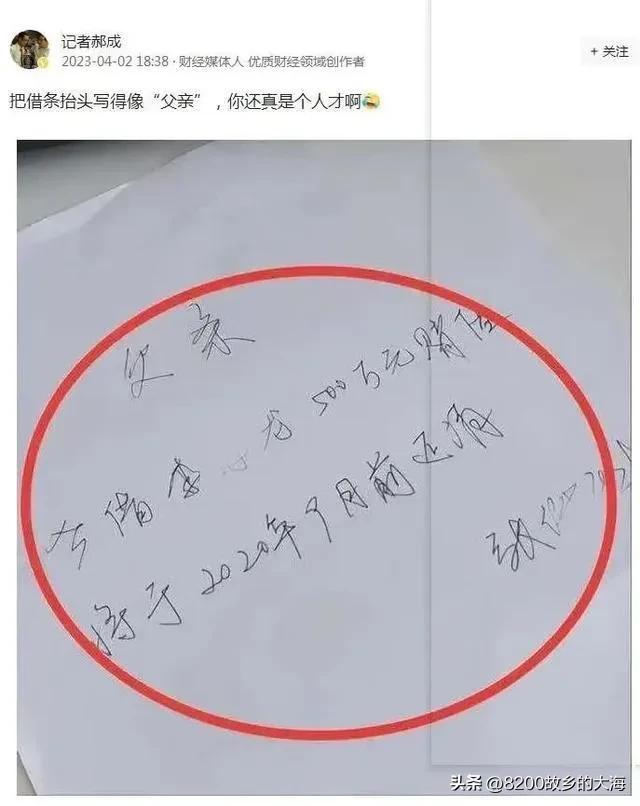 记者郝成
2023-04-02 18:38 · 财经媒体人 优质财经领域创作者
+ 关注
把借条抬头写得像“父亲”，你还真是个人才啊😂
欠条
今借李 龙 500万元赌债
将于2020年9月前还清
头条 @8200故乡的大海